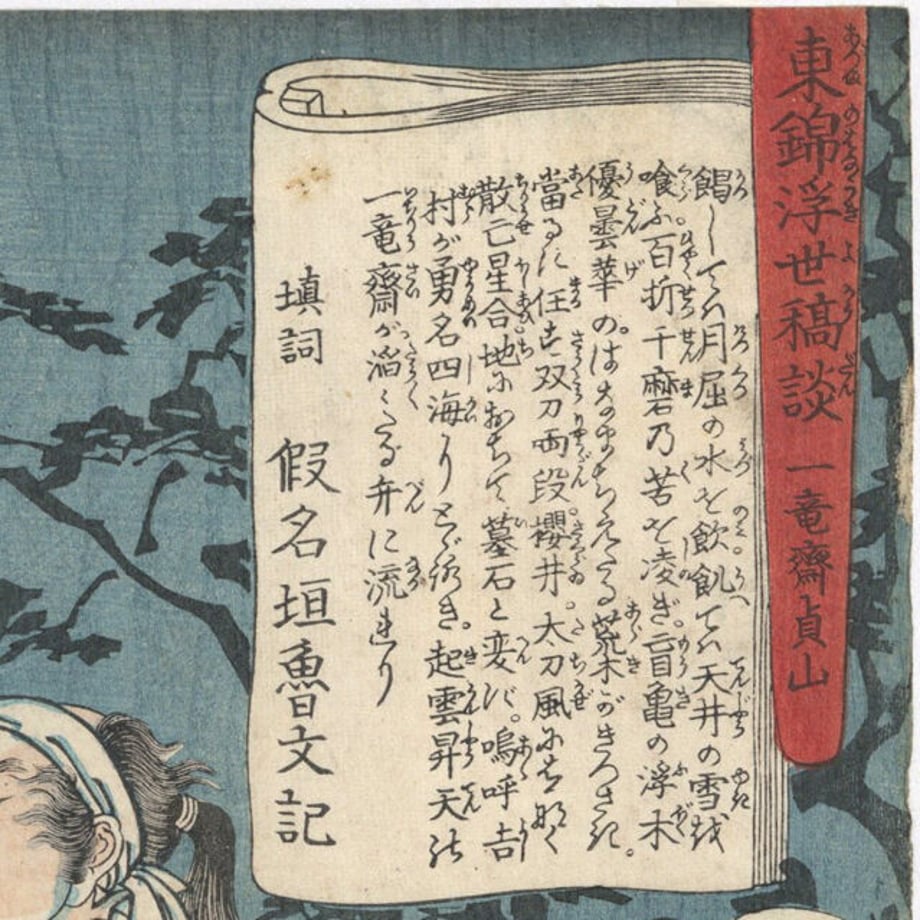 東錦浮世稿談 一竜齋貞山
餲しては月屈の水を飲飢ては天井の雪を
喰ふ百折千磨乃苦を凌ぎ盲亀の浮木
優曇華の。はなまちえたる荒木がきろさき。
當るに任す双刀両段。櫻井。太刀風にもなく
散亡星合地におちて墓石と変ず。嗚呼吉
村が勇名四海りとゞろき。起雲昇天の
一竜齋が滔〻たる弁に流れり
填詞 假名垣魯文記